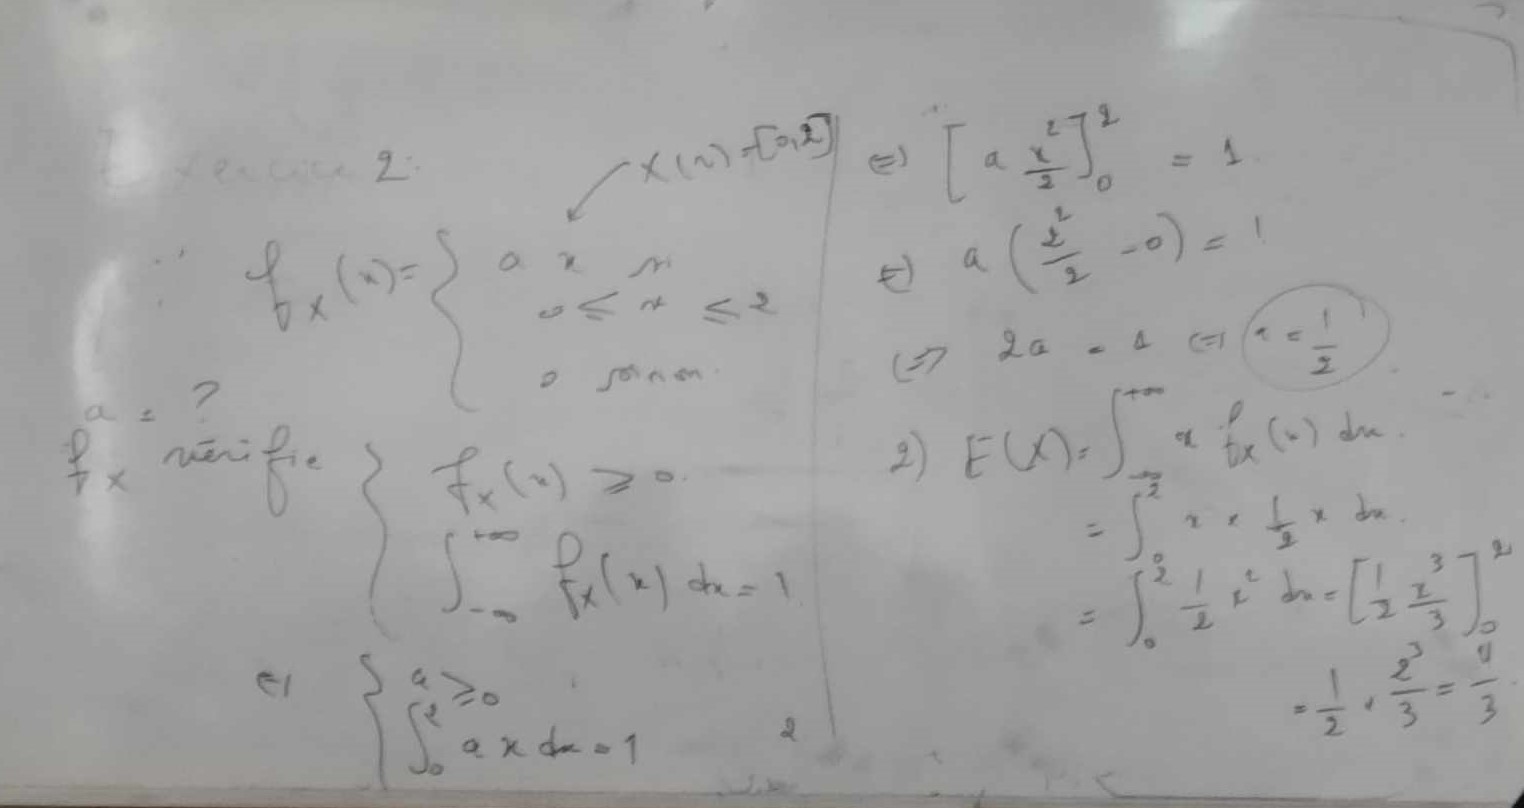 Exercice 2:
X(Ω)=[0,2]
f_X(x) = { a x si
0 ≤ x ≤ 2
0 sinon.
a = ?
f_X vérifie { f_X(x) ≥ 0.
∫_{-∞}^{+∞} f_X(x) dx = 1
⇔ { a ≥ 0
∫_0^2 a x dx = 1
⇔ [a x²/2]_0^2 = 1
⇔ a (2²/2 - 0) = 1
⇔ 2a = 1 ⇔ a = 1/2
2) E(X) = ∫_{-∞}^{+∞} x f_X(x) dx.
= ∫_0^2 x × 1/2 x dx.
= ∫_0^2 1/2 x² dx = [1/2 x³/3]_0^2
= 1/2 × 2³/3 = 4/3.